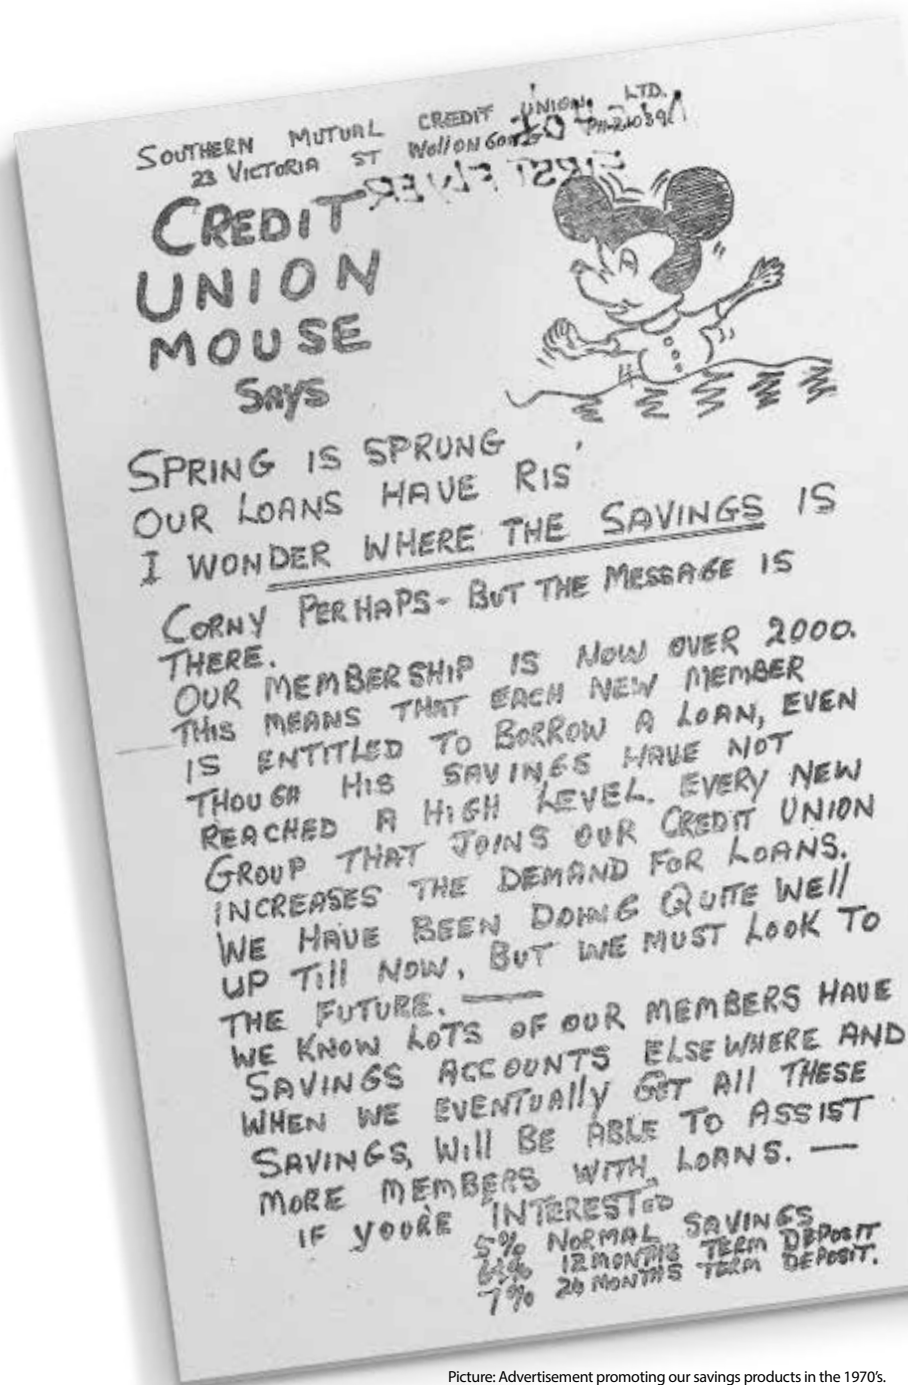 SOUTHERN MUTUAL CREDIT UNION LTD.
23 VICTORIA ST WollONGONG
FIRST FLYER
CREDIT
UNION
MOUSE
SAYS
SPRING IS SPRUNG
OUR LOANS HAVE RIS'
I WONDER WHERE THE SAVINGS IS
CORNY PERHAPS - BUT THE MESSAGE IS
THERE.
OUR MEMBERSHIP IS NOW OVER 2000.
THIS MEANS THAT EACH NEW MEMBER
IS ENTITLED TO BORROW A LOAN, EVEN
THOUGH HIS SAVINGS HAVE NOT
REACHED A HIGH LEVEL. EVERY NEW
GROUP THAT JOINS OUR CREDIT UNION
INCREASES THE DEMAND FOR LOANS.
WE HAVE BEEN DOING QUITE WEll
UP Till NOW, BUT WE MUST LOOK TO
THE FUTURE. —
WE KNOW LOTS OF OUR MEMBERS HAVE
SAVINGS ACCOUNTS ELSEWHERE AND
WHEN WE EVENTUAlly GET All THESE
SAVINGS, Will BE ABLE TO ASSIST
MORE MEMBERS WITH LOANS. —
IF YOU'RE INTERESTED
5% NORMAL SAVINGS
12 MONTHS TERM DEPOSIT
7% 24 MONTHS TERM DEPOSIT.
Picture: Advertisement promoting our savings products in the 1970's.